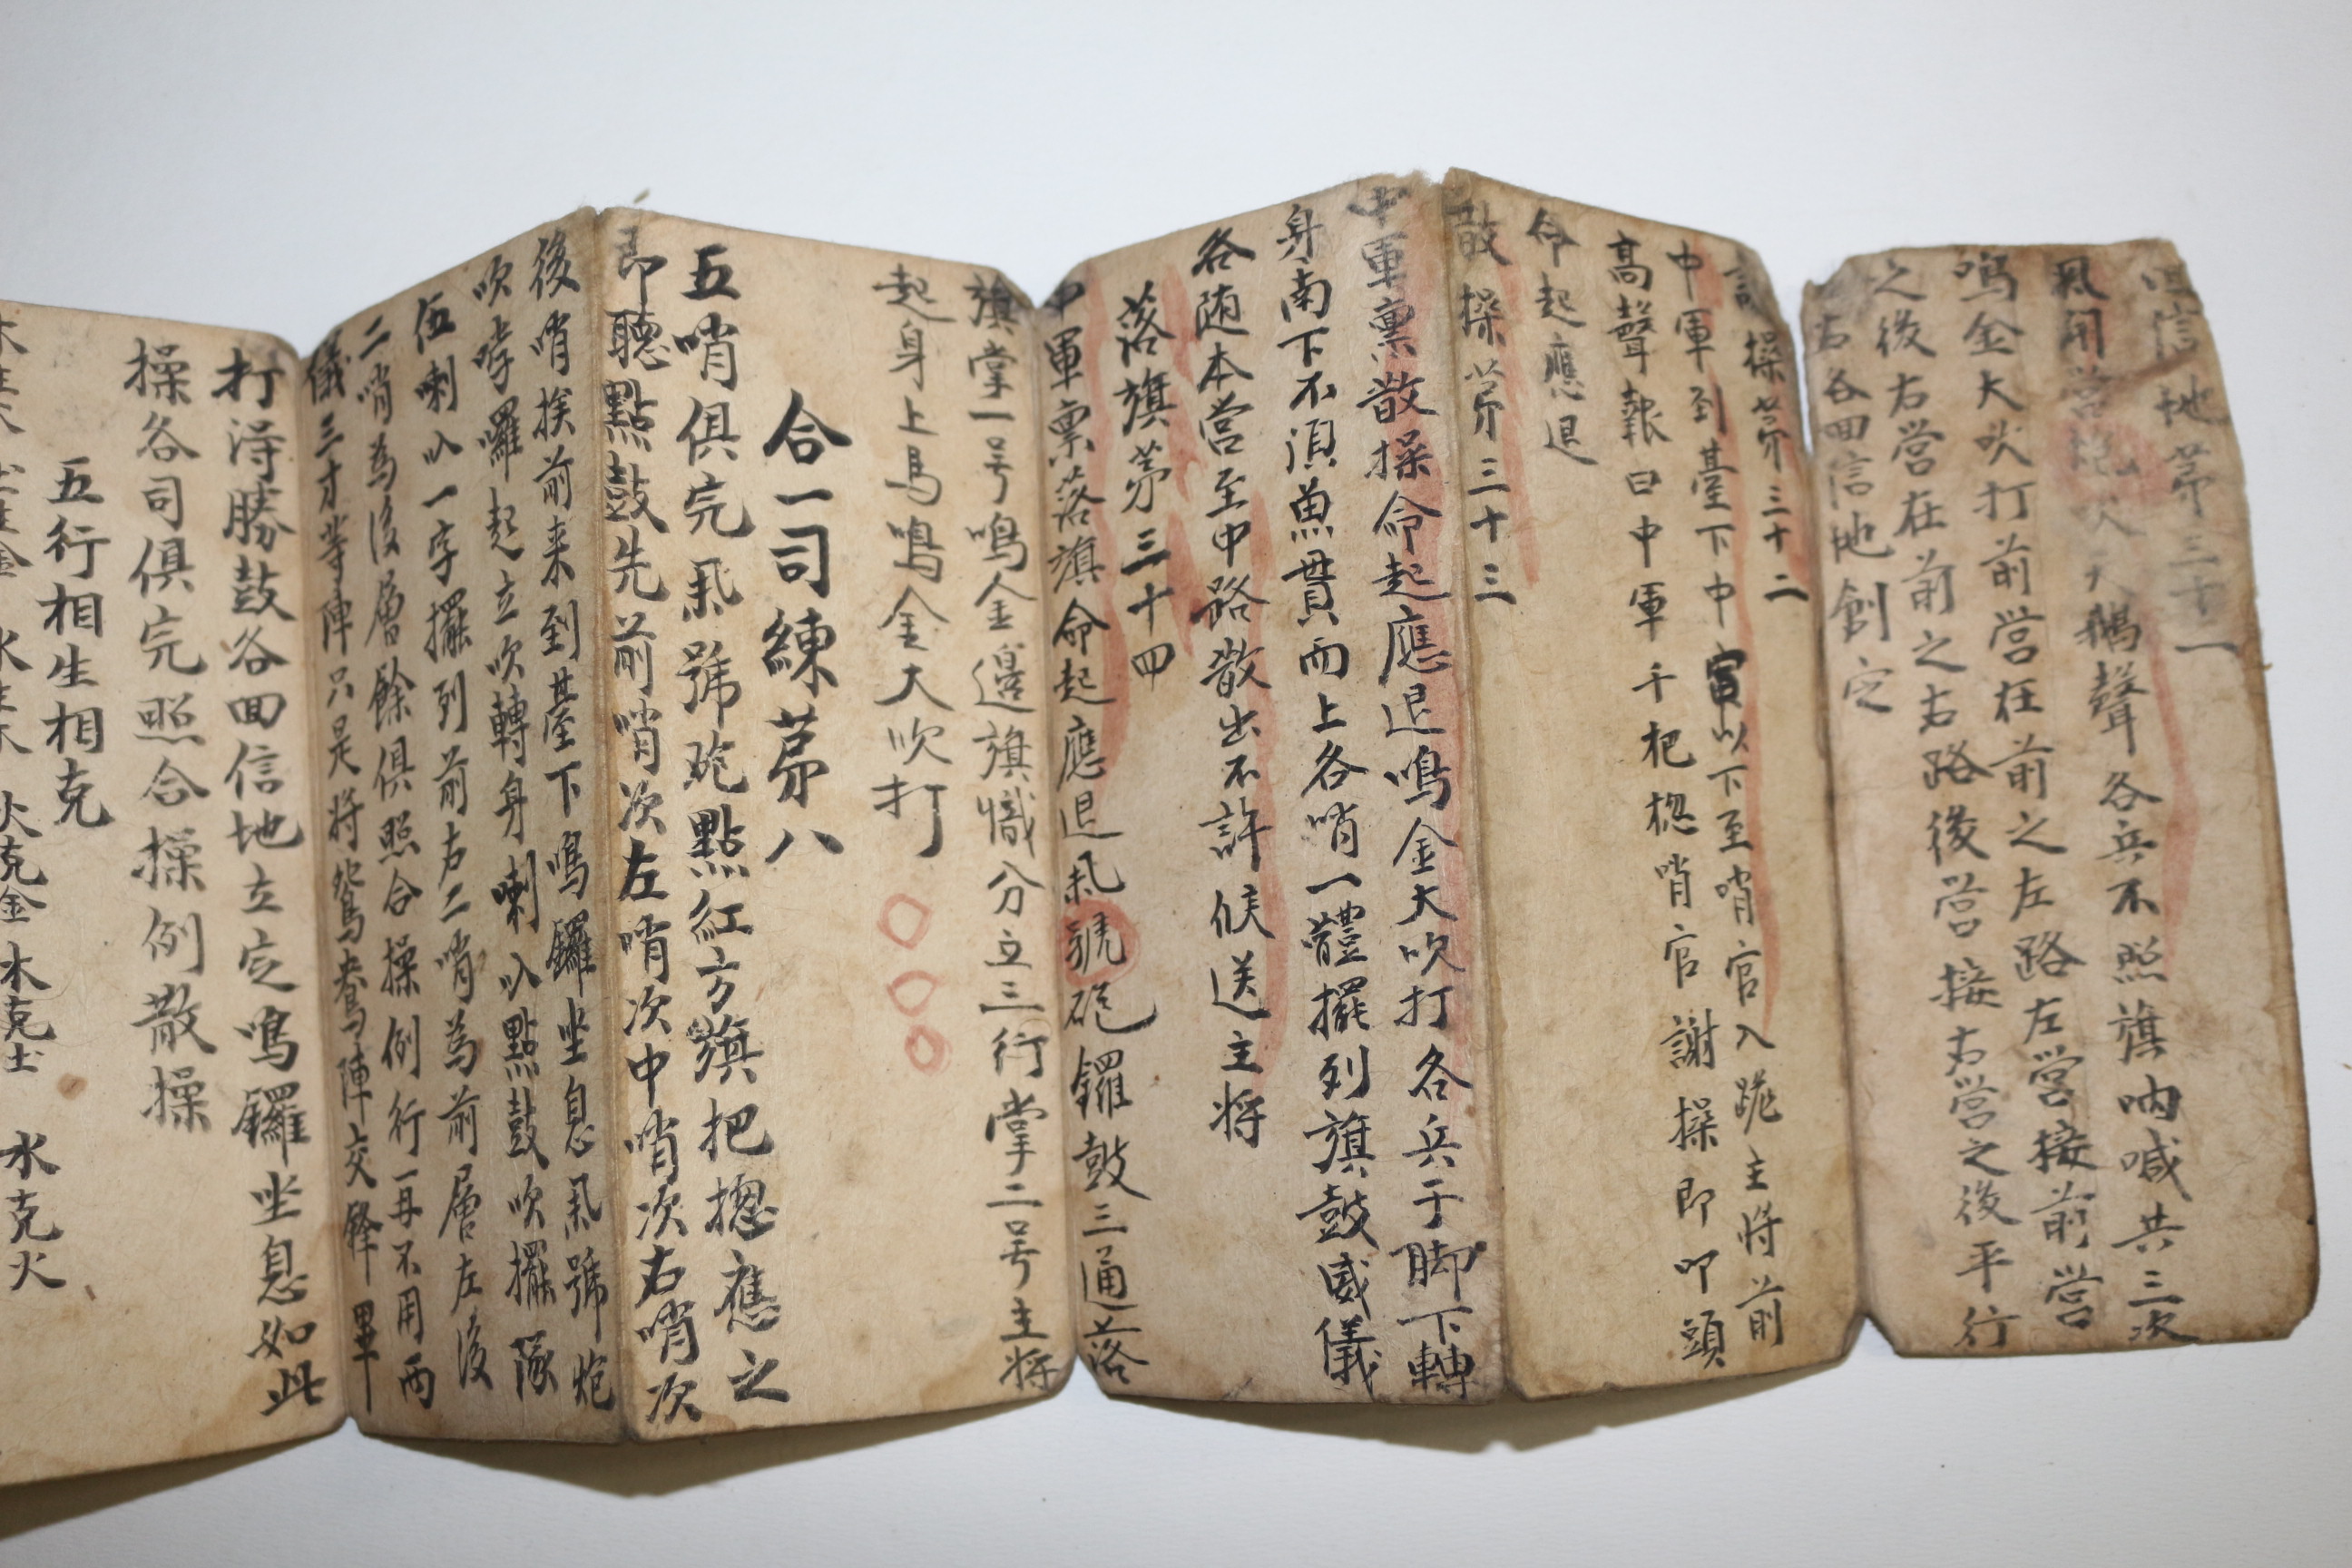 回信地苐三十一
開營砲吹天鵝聲各兵不照旗吶喊共三次
鳴金大吹打前营在前之左路左营接前营
之後右营在前之右路後营接右营之後平行
右各回信地劄定
謝操苐三十二
中軍到臺下中軍以下至哨官入跪主將前
高聲報曰中軍千把揔哨官謝操即叩頭
命起應退
散操苐三十三
中軍禀散操命起應退鳴金大吹打各兵于脚下轉
身南下不須魚貫而上各哨一體擺列旗鼓威儀
各随本营至中路散出不許候送主将
落旗苐三十四
中軍禀落旗命起應退氣號砲鑼鼓三通落
旗掌一号鳴金邊旗幟分立三行掌二号主将
起身上馬鳴金大吹打
合一司練苐八
五哨俱完氣號砲點紅方旗把摠應之
即聽點鼓先前哨次左哨次中哨次右哨次
後哨挨前来到基臺下鳴鑼坐息氣號炮
吹哱囉起立吹轉身喇叭點鼓吹擺隊
伍喇叭一字擺列前右二哨為前層左後
二哨為後層餘俱照合操例行一再不用两
儀三才等陣只是将鴛鴦陣交鋒畢
打得勝鼓各回信地立定鳴鑼坐息如此
操各司俱完照合操例散操
五行相生相克
火克金 木克土 水克火